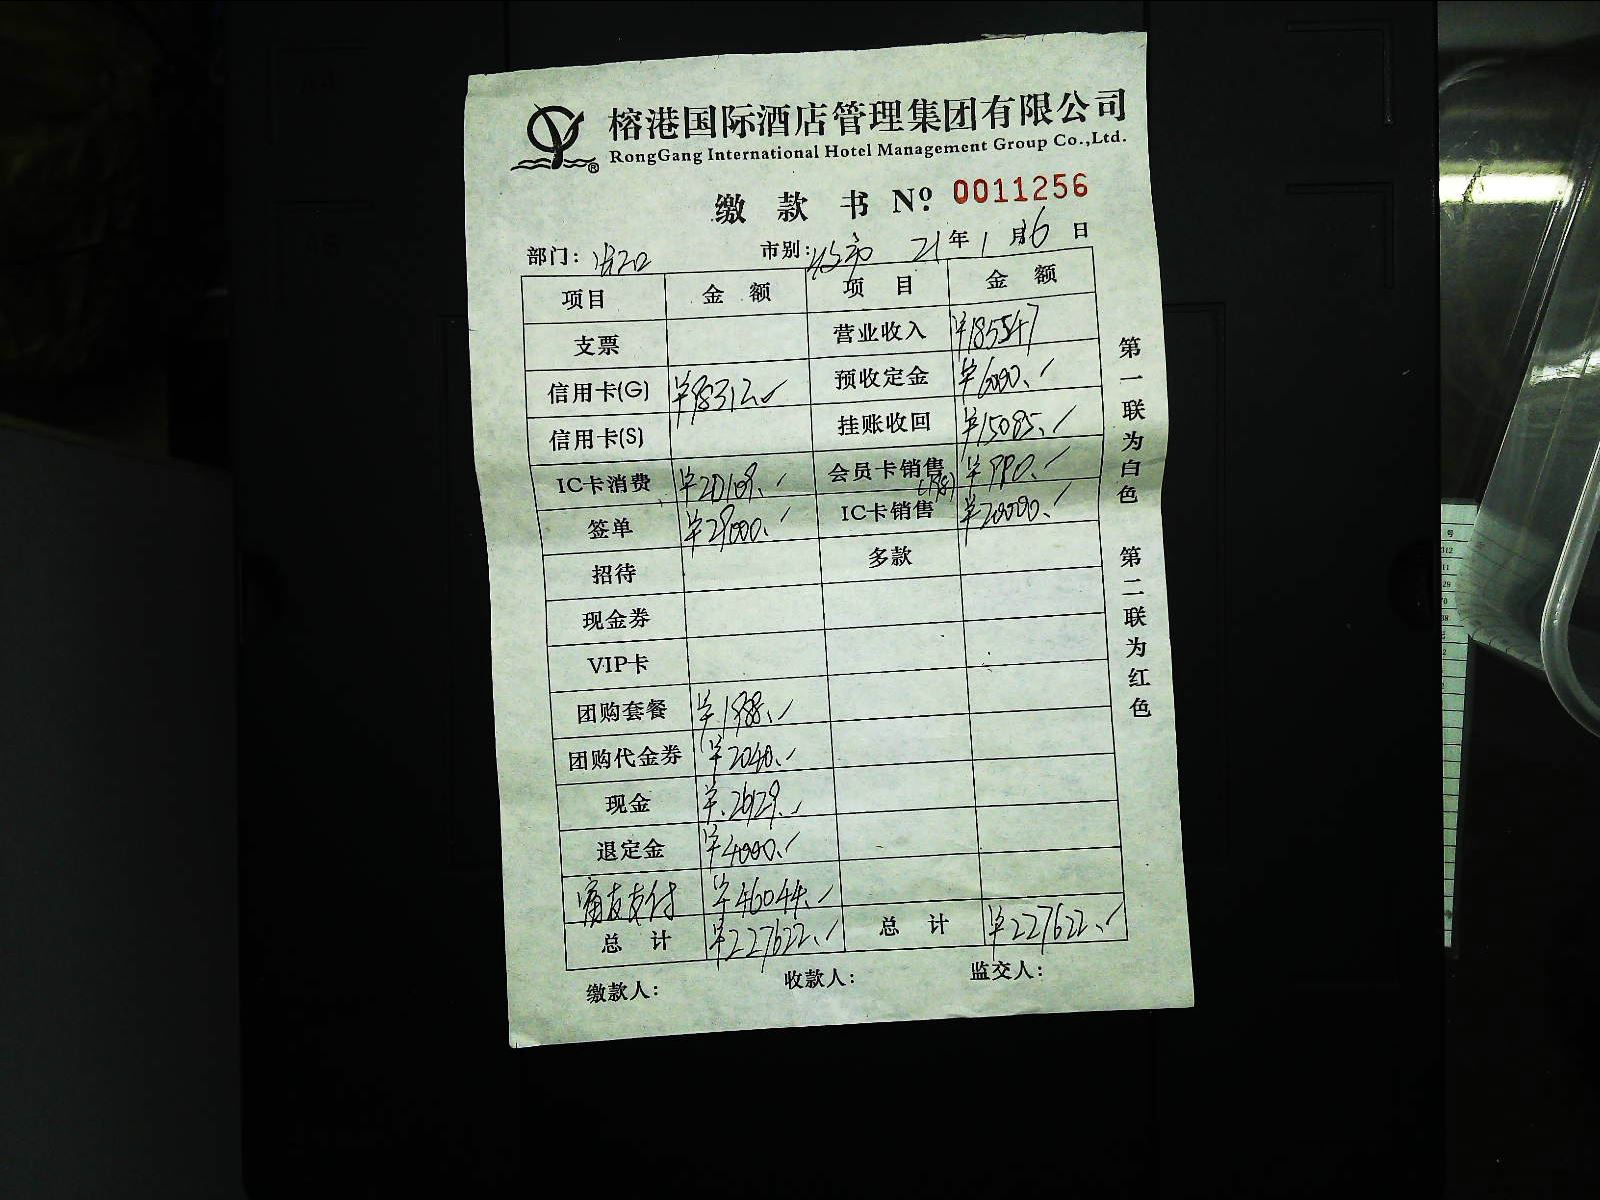 榕港国际酒店管理集团有限公司
RongGang International Hotel Management Group Co.,Ltd.
缴款书 Nº. 0011256
部门: 市别: 21年1月6日
项目 金额 项目 金额
支票 营业收入 ¥185547
信用卡(G) ¥98312. 预收定金 ¥6000.
信用卡(S) 挂账收回 ¥15085.
IC卡消费 ¥20109. 会员卡销售 ¥990.
签单 ¥29000. IC卡销售 ¥20000.
招待 多款
现金券
VIP卡
团购套餐 ¥1988.
团购代金券 ¥2040.
现金 ¥26129.
退定金 ¥4000.
支付 ¥46044.
总计 ¥227622. 总计 ¥227622.
缴款人: 收款人: 监交人:
第一联为白色 第二联为红色